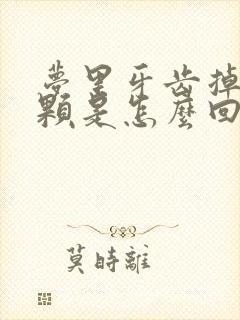 夢里牙齿掉
顆是怎麼回
莫時離